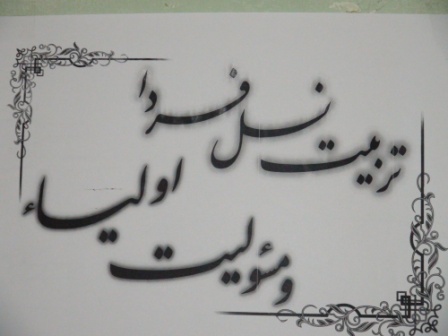 تربیت نسل فردا
و مسئولیت اولیاء